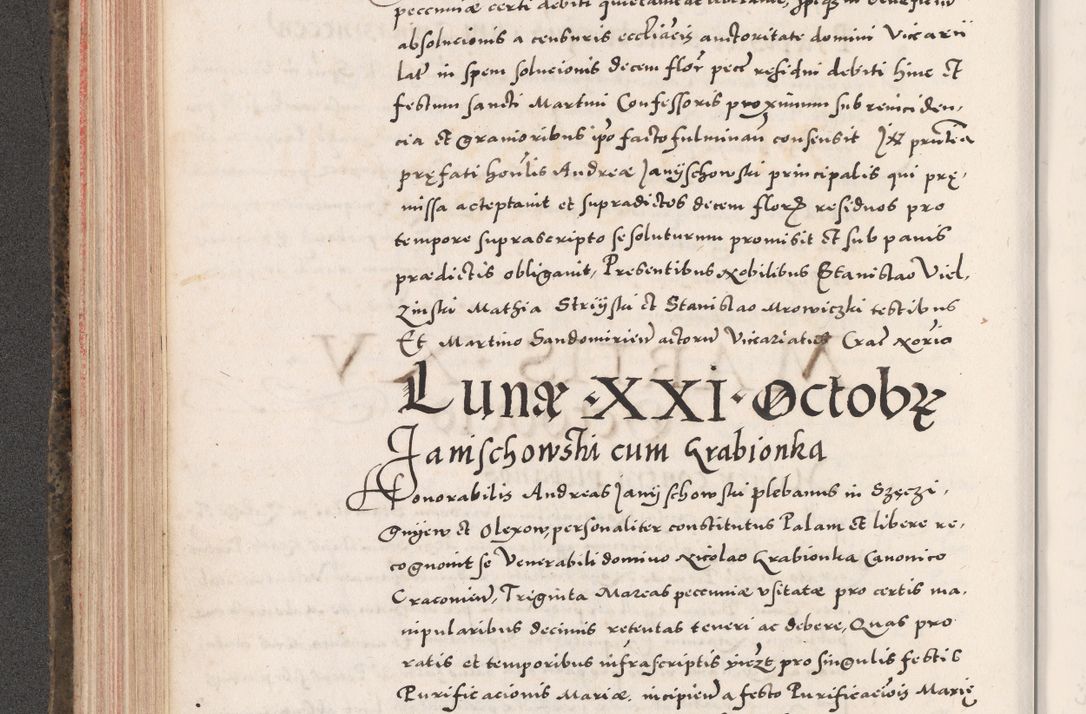 pecuniæ certi debiti quietavit ac liberavit, ipsq3 in beneficium
absolucionis a censuris eccliãcis auctoritate domini Vicarii
lat̃ in spem solucionis decem flor̃ pec̃ residui debiti hinc et
festum sancti Martini Confessoris proximum sub reinciden,
cia et Gravioribus ip̃o facto fulminañ consensit
præfati hoñlis Andreæ Janÿschowski principalis qui præ,
missa acceptavit et supradictos decem flor̃ residuos pro
tempore suprascripto se soluturum promisit et sub pænis
prædictis obligavit, Presentibus Nobilibus Stanislao Viel,
zinski Mathia Striÿski et Stanislao Mrowiczki testibus
Et Martino Sandomirieñ actorũ Vicariatus Crac̃ Norio
Lunæ XXI Octobr
Janischowski cum Grabionka
Honorabilis Andreas Janÿschowski plebanus in Szęczi,
gniew et Olexow, personaliter constitutus Palam et libere re,
cognovit se Venerabili domino Nicolao Grabionka Canonico
Cracovieñ, Triginta Marcas pecuniæ usitatæ pro certis ma,
nipularibus decimis retentas teneri ac debere, Quas pro
ratis et temporibus infrascriptis pro singulis festis
Purificacionis Mariæ, incipieñ a festo Purificac̃iois Mariæ